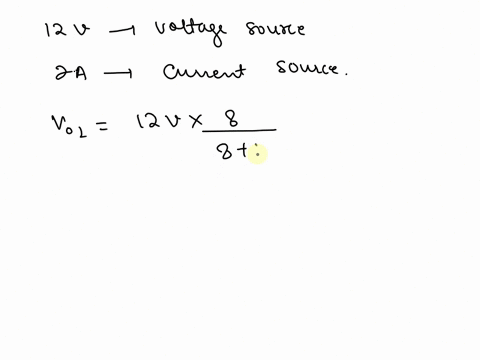 12 v → Voltage source
2A → Current source.
Vo1 = 12 v × 8
8 + :